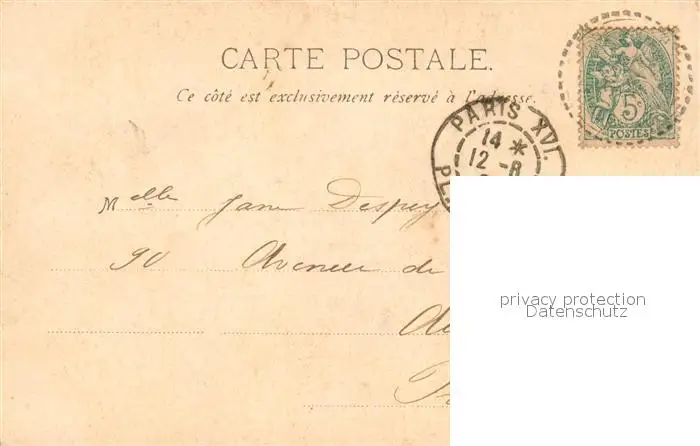 CARTE POSTALE.
Ce côté est exclusivement réservé à l'adresse.
5c
POSTES
PARIS XVI.
14 *
12 -8
PL.
Melle Jane Despey
90 Avenue de
privacy protection
Datenschutz